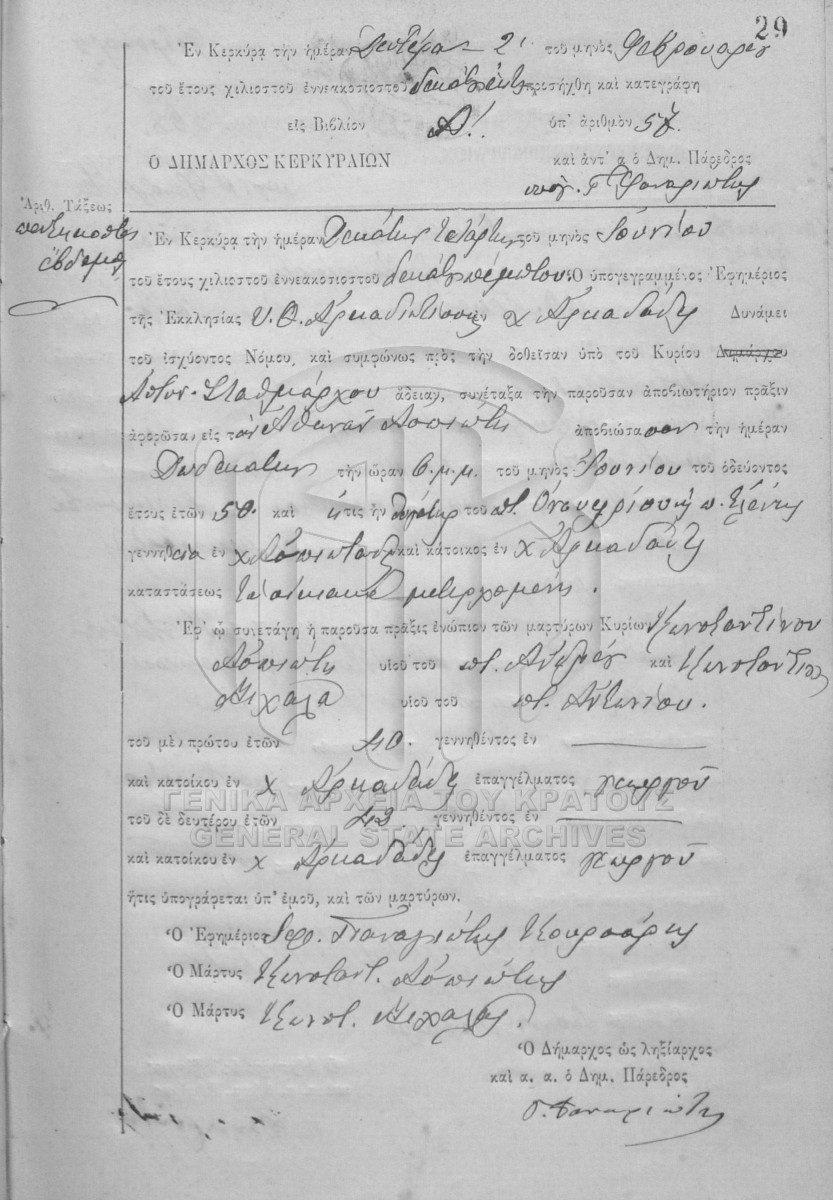 29
Ἐν Κερκύρᾳ τὴν ἡμέραν Δευτέρα 2 τοῦ μηνὸς Φεβρουαρίου
τοῦ ἔτους χιλιοστοῦ ἐννεακοσιοστοῦ δεκάτου ἕκτου προσήχθη καὶ κατεγράφη
εἰς Βιβλίον Α! ὑπ' ἀριθμὸν 57.
Ο ΔΗΜΑΡΧΟΣ ΚΕΡΚΥΡΑΙΩΝ καὶ ἀντ' α ὁ Δημ. Πάρεδρος
υπογ. Γ Φαναριώτης
Ἀριθ. Τάξεως
πεντηκοστὸς
ἕβδομος
Ἐν Κερκύρᾳ τὴν ἡμέραν Δεκάτην τετάρτην τοῦ μηνὸς Ἰουνίου
τοῦ ἔτους χιλιοστοῦ ἐννεακοσιοστοῦ δεκάτου πέμπτου. Ὁ ὑπογεγραμμένος Ἐφημέριος
τῆς Ἐκκλησίας Υ. Θ. Ἀρκαδιωτίσσης ἐν χ Ἀρκαδάδες Δυνάμει
τοῦ ἰσχύοντος Νόμου, καὶ συμφώνως πρὸς τὴν δοθεῖσαν ὑπὸ τοῦ Κυρίου Δημάρχου
Ἀστυν. Σταθμάρχου ἄδειαν, συνέταξα τὴν παροῦσαν ἀποβιωτήριον πρᾶξιν
ἀφορῶσαν εἰς τὴν Ἀθηνᾶν Ἀσπιώτη ἀποβιώσασαν τὴν ἡμέραν
Δωδεκάτην τὴν ὥραν 6 μ.μ. τοῦ μηνὸς Ἰουνίου τοῦ ὁδεύοντος
ἔτους ἐτῶν 50. καὶ ἥτις ἦν θυγάτηρ τοῦ ποτ. Ὀνουφρίου καὶ π. Ἑλένης
γεννηθεῖσα ἐν χ Ἀσπιωτάδες καὶ κάτοικος ἐν χ Ἀρκαδάδες
καταστάσεως τὰ οἰκιακὰ μετερχομένης.
Ἐφ' ᾧ συνετάγη ἡ παροῦσα πρᾶξις ἐνώπιον τῶν μαρτύρων Κυρίων Κωνσταντίνου
Ἀσπιώτη υἱοῦ τοῦ ποτ. Ἀνδρέου καὶ Κωνσταντίνου
Μιχαλᾶ υἱοῦ τοῦ ποτ. Ἀντωνίου.
τοῦ μὲν πρώτου ἐτῶν 40. γεννηθέντος ἐν
καὶ κατοίκου ἐν χ Ἀρκαδάδες ἐπαγγέλματος γεωργοῦ
ΓΕΝΙΚΑ ΑΡΧΕΙΑ ΤΟΥ ΚΡΑΤΟΥΣ
τοῦ δὲ δευτέρου ἐτῶν 42. γεννηθέντος ἐν
GENERAL STATE ARCHIVES
καὶ κατοίκου ἐν χ Ἀρκαδάδες ἐπαγγέλματος γεωργοῦ
ἥτις ὑπογράφεται ὑπ' ἐμοῦ, καὶ τῶν μαρτύρων.
Ὁ Ἐφημέριος Ἱερ. Παναγιώτης Κουρσάρης
Ὁ Μάρτυς Κωνσταντ. Ἀσπιώτης
Ὁ Μάρτυς Κωνστ. Μιχαλᾶς.
Ὁ Δήμαρχος ὡς ληξίαρχος
καὶ α. α. ὁ Δημ. Πάρεδρος
Γ. Φαναριώτης